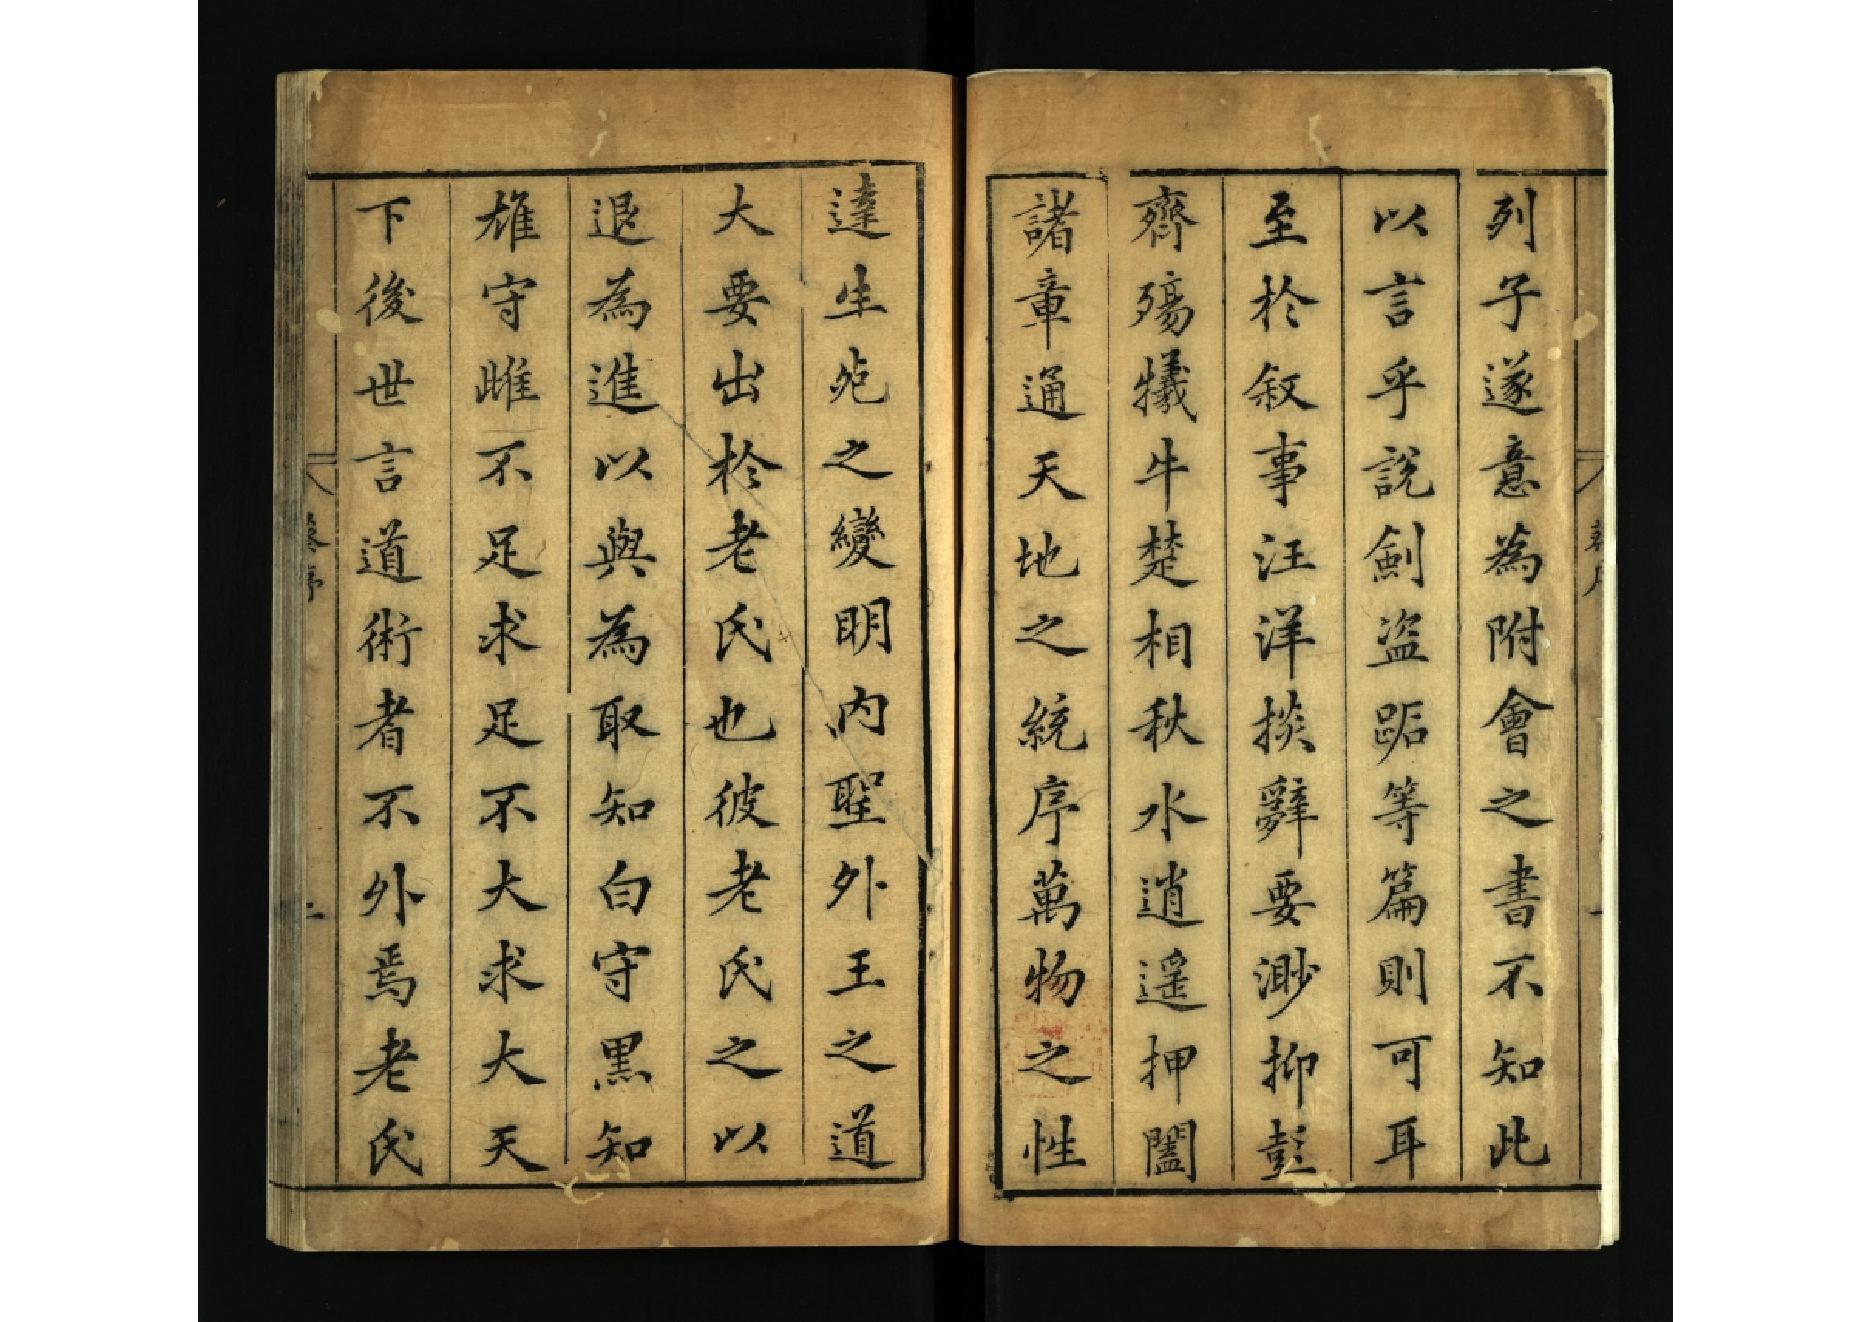 列子遂意為附會之書不知此
以言乎說劍盗跖等篇則可耳
至於叙事汪洋掞辭要渺抑彭
齊殤犧牛楚相秋水逍遥押闔
諸章通天地之統序萬物之性
達生死之變明内聖外王之道
大要出於老氏也彼老氏之以
退為進以與為取知白守黒知
雄守雌不足求足不大求大天
下後世言道術者不外焉老氏